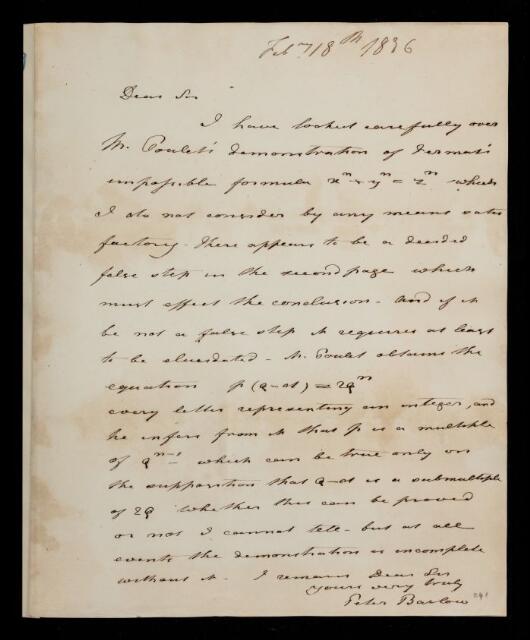 Feby 18th 1836
Dear Sir
I have looked carefully over
M. Poulet's demonstration of Fermat's
impossible formula x^n + y^n = z^n which
I do not consider by any means satis
factory. There appears to be a decided
false step in the second page which
must affect the conclusion - And if it
be not a false step it requires at least
to be elucidated - M. Poulet obtains the
equation p(q-at) = 2q^n
every letter representing an integer, and
he infers from it that p is a multiple
of q^n-1 which can be true only on
the supposition that q-at is a submultiple
of 2q whether this can be proved
or not I cannot tell - but at all
events the demonstration is incomplete
without it. I remain Dear Sir
yours very truly
Peter Barlow